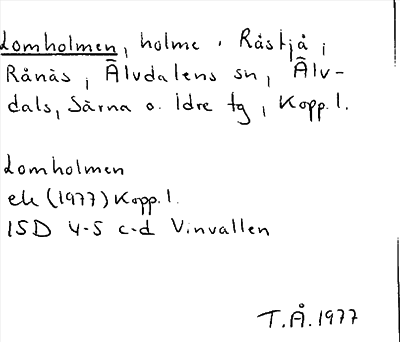 Lomholmen, holme i Råstjå i
Rånäs i Älvdalens sn, Älv-
dals, Särna o. Idre tg, Kopp. l.
Lomholmen
ek (1977) Kopp. l.
15D 4-5 c-d Vinvallen
T.Å. 1977